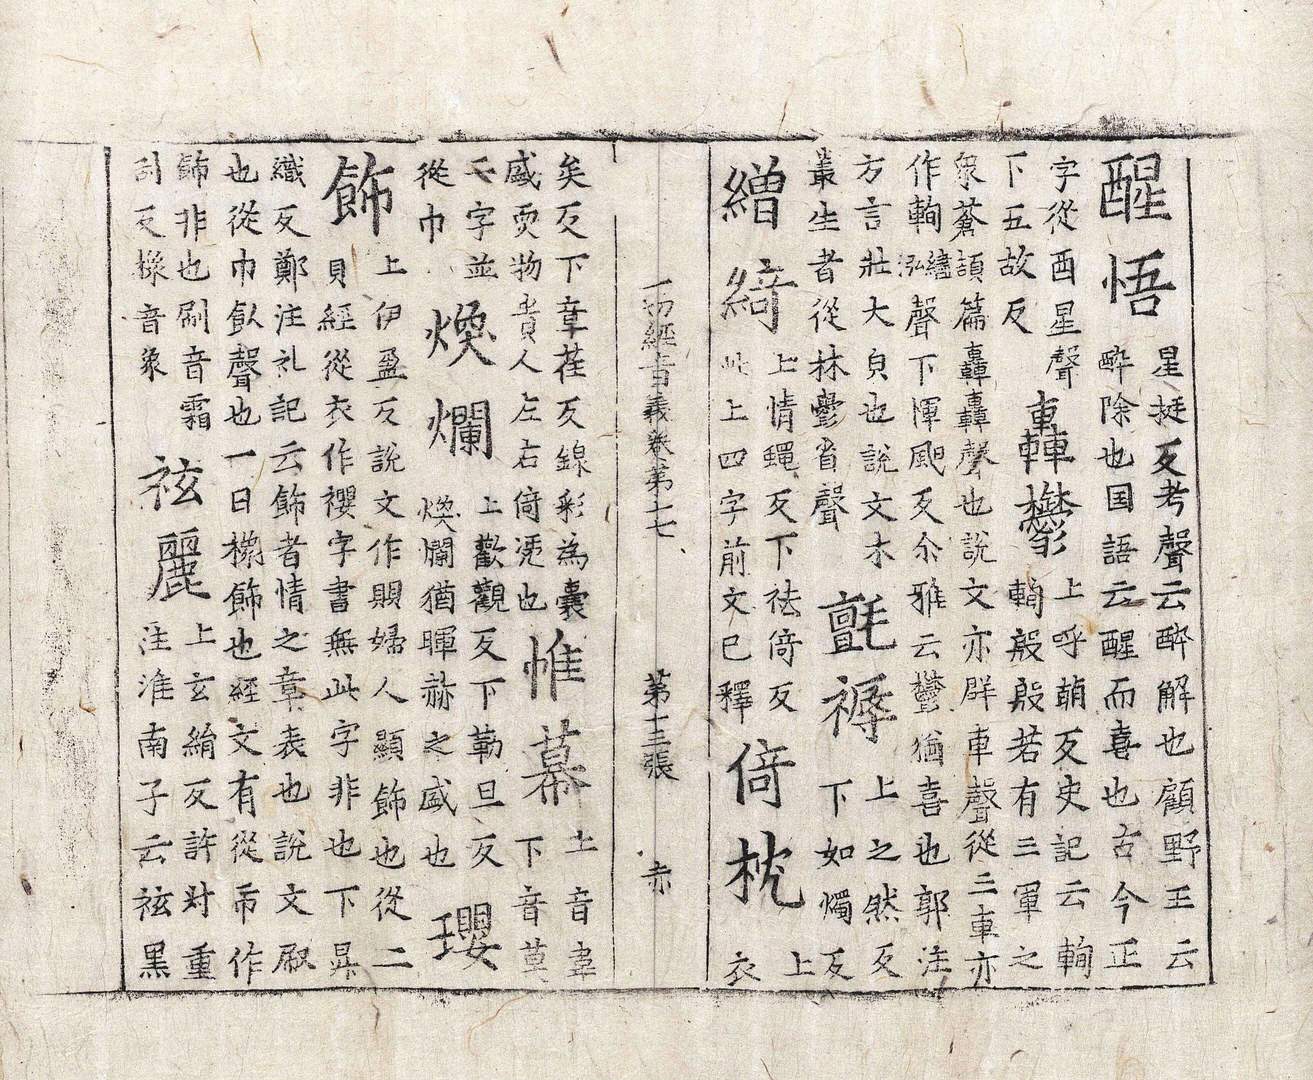 醒悟
星挺反考聲云醉解也顧野王云
醉除也国語云醒而喜也古今正
字從酉星聲
下五故反
轟鬱
上呼萌反史記云輷
輷殷殷若有三軍之
衆蒼頡篇轟轟聲也說文亦群車聲從三車亦
作輷繣泓聲下惲颶反尒雅云鬱猶喜也郭注
方言壯大皃也說文木
叢生者從林鬱省聲
氈褥
上之然反
下如燭反
繒綺
上情蠅反下袪倚反
此上四字前文已釋
倚枕
上
衣
一切經音義卷第十七 第十三張 赤
矣反下章荏反線彩為囊
盛耎物貴人左右倚凭也
帷幕
上音韋
下音莫
二字並
從巾
煥爛
上歡觀反下勒旦反
煥爛猶暉赫之盛也
瓔
飾
上伊盈反說文作賏婦人顯飾也從二
貝經從衣作䙬字書無此字非也下昇
織反鄭注礼記云飾者情之章表也說文㕞
也從巾飤聲也一曰橡飾也經文有從帀作
飾非也刷音霜
刮反橡音象
袨麗
上玄絹反許对重
注淮南子云袨黑